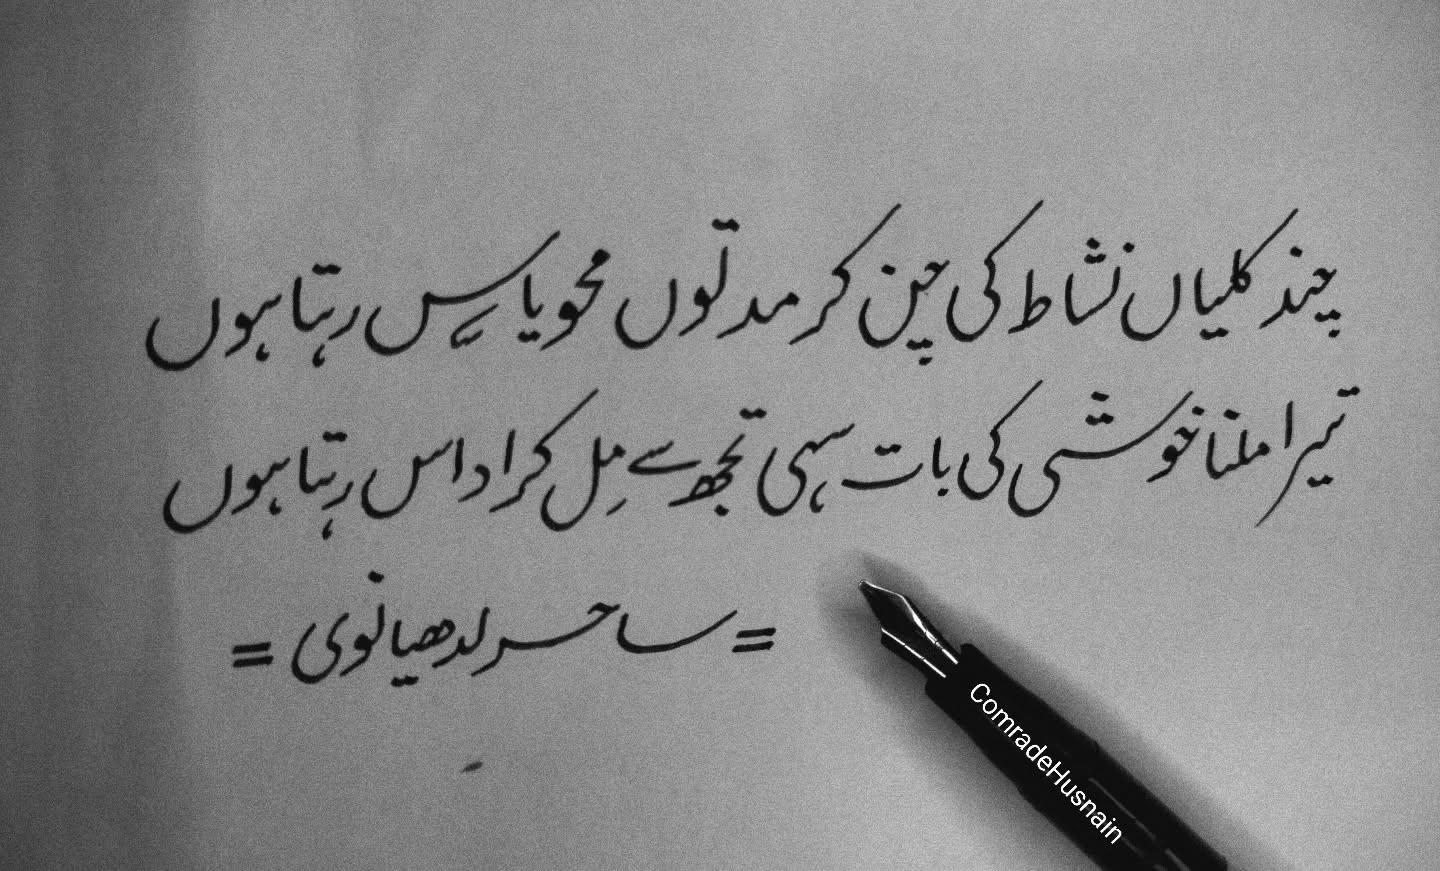 چند کلیاں نشاط کی چن کر مدتوں محو یاس رہتا ہوں
تیرا ملنا خوشی کی بات سہی تجھ سے مِل کر اداس رہتا ہوں
= ساحر لدھیانوی =
ComradeHusnain